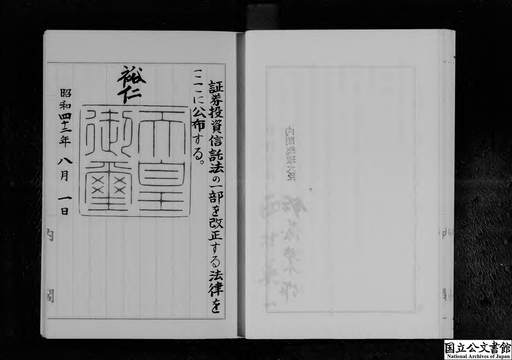 証券投資信託法の一部を改正する法律を
ここに公布する。
裕仁
天皇
御璽
昭和四十三年八月一日
国立公文書館
National Archives of Japan